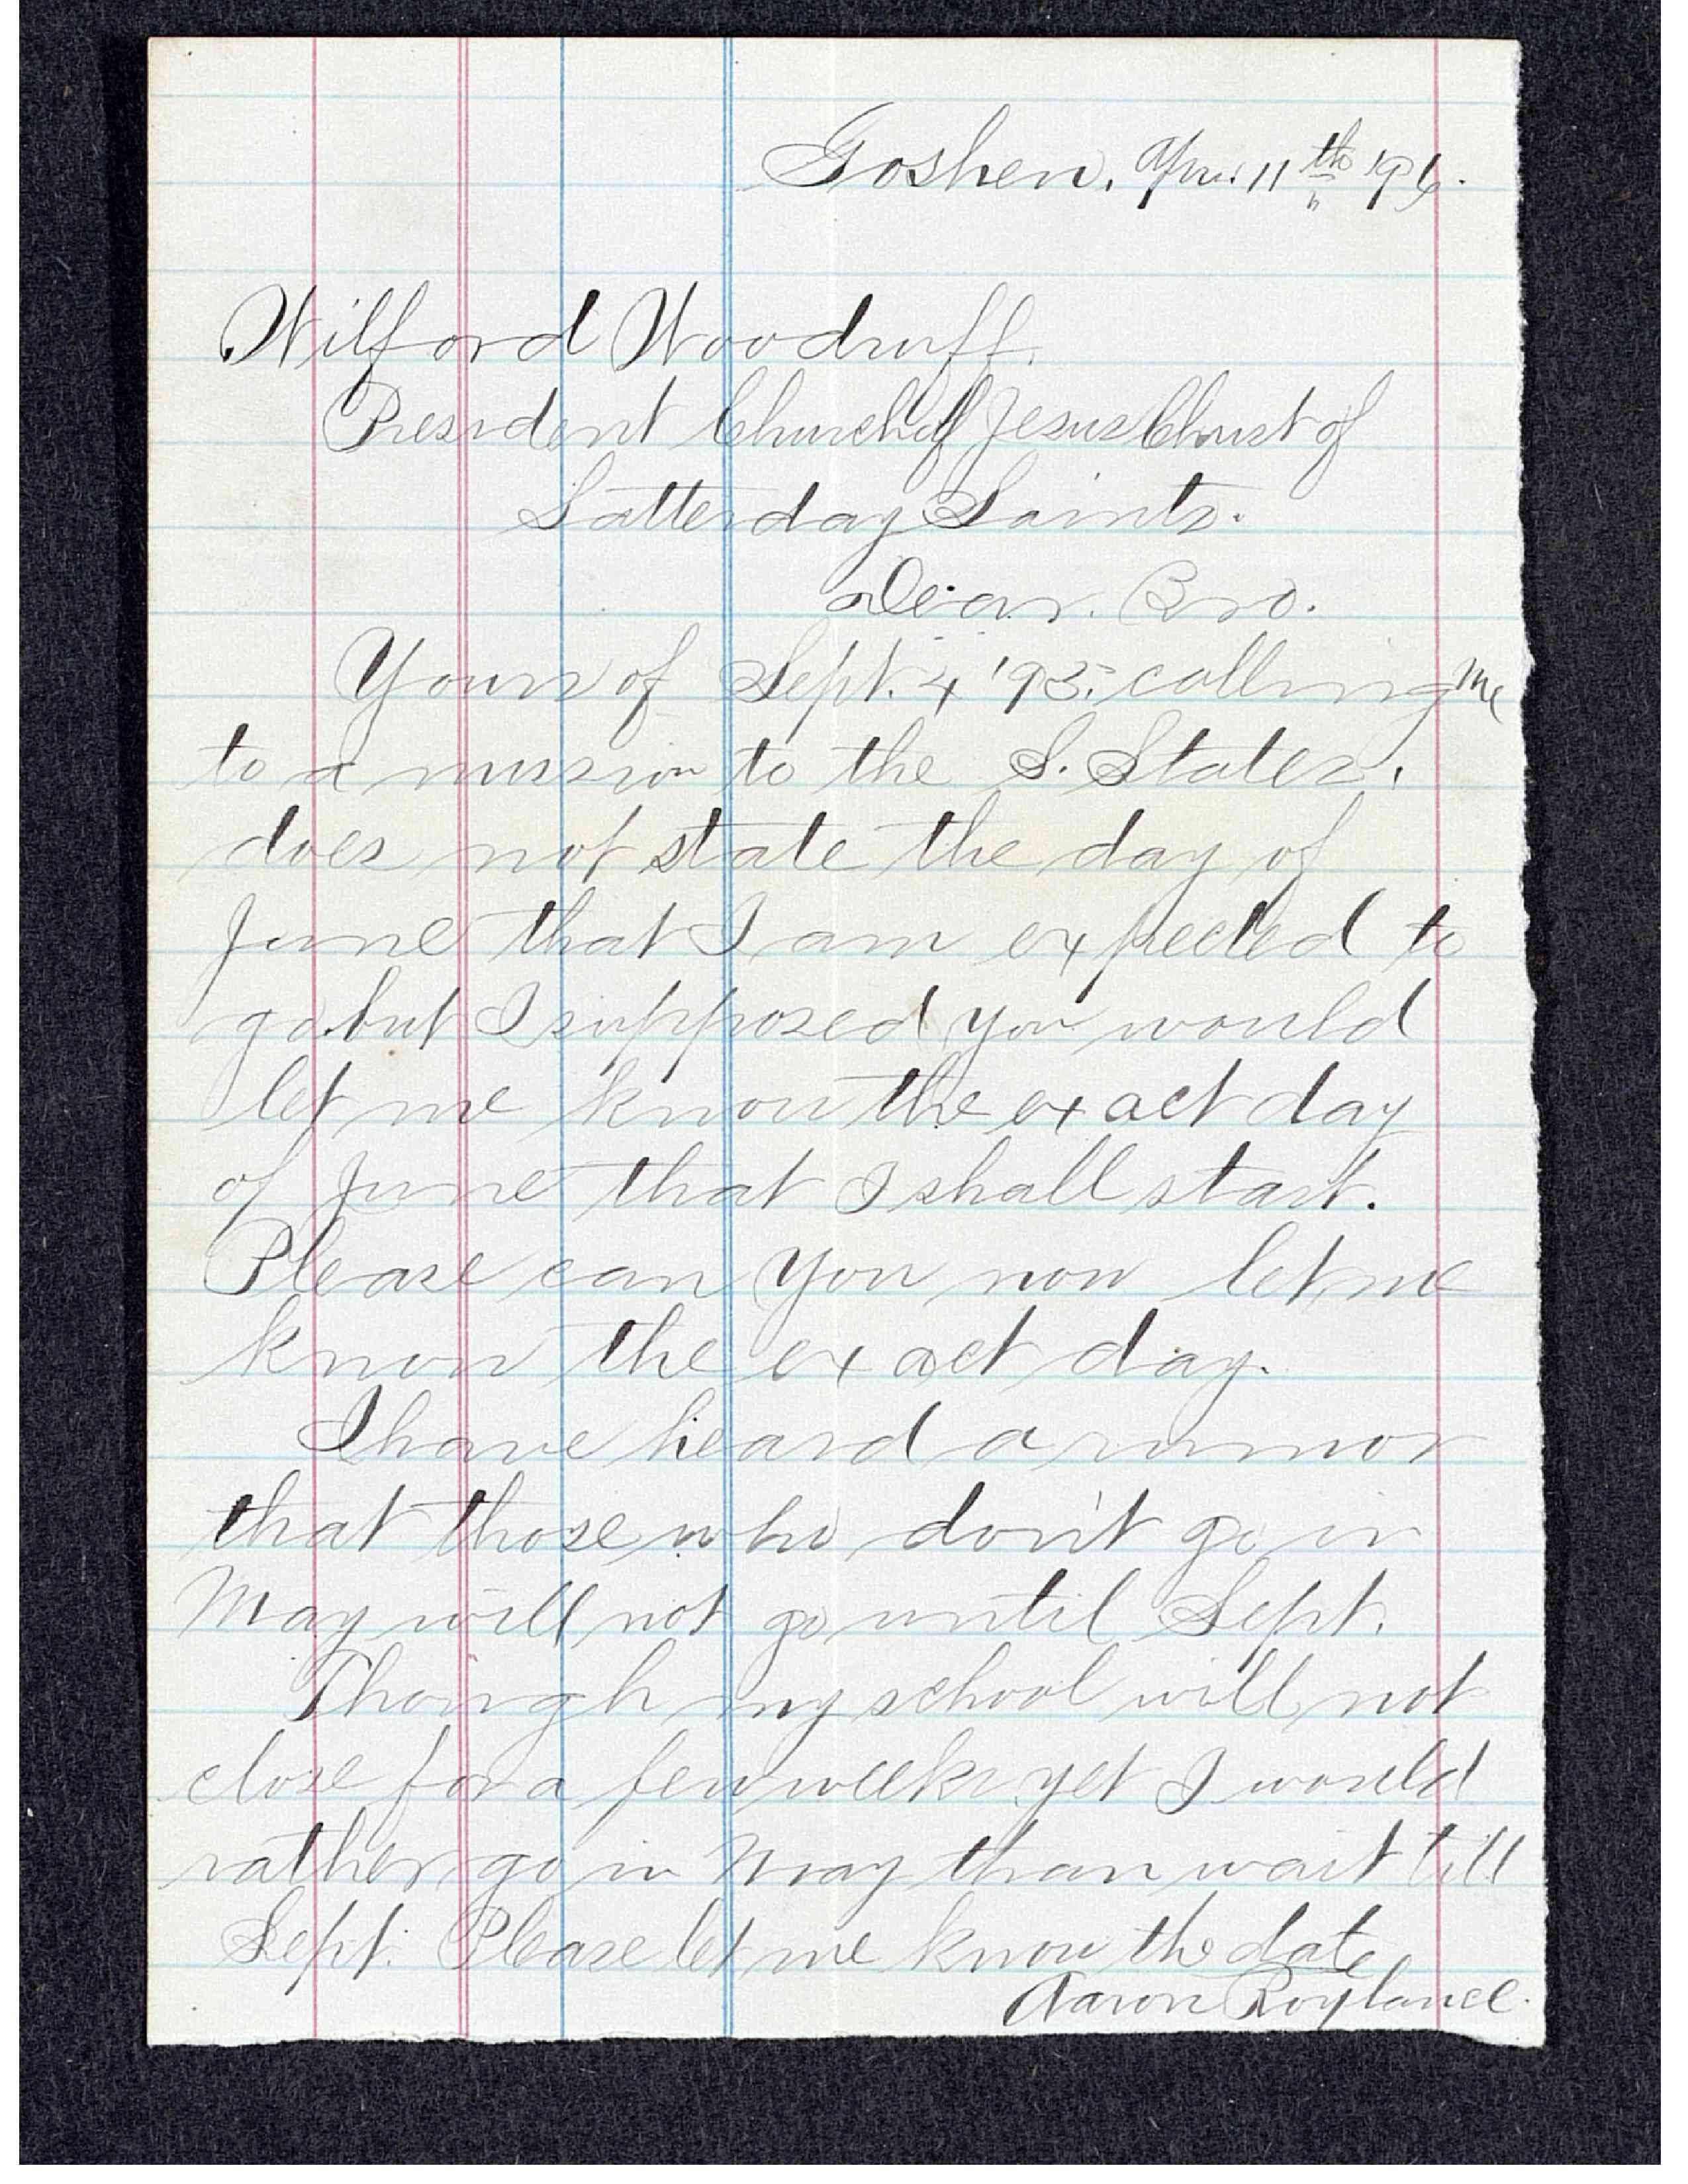 Goshen. Apr. 11th '96.
Wilford Woodruff.
President Church of Jesus Christ of
Latterday Saints.
Dear. Bro.
Yours of Sept. 4 '95. calling me
to a mission to the S. States.
does not state the day of
June that I am expected to
go. but I supposed you would
let me know the exact day
of June that I shall start.
Please can you now let me
know the exact day.
I have heard a rumor
that those who don't go in
May will not go until Sept.
Though my school will not
close for a few weeks yet I would
rather go in May than wait till
Sept. Please let me know the date
Aaron Roylance.